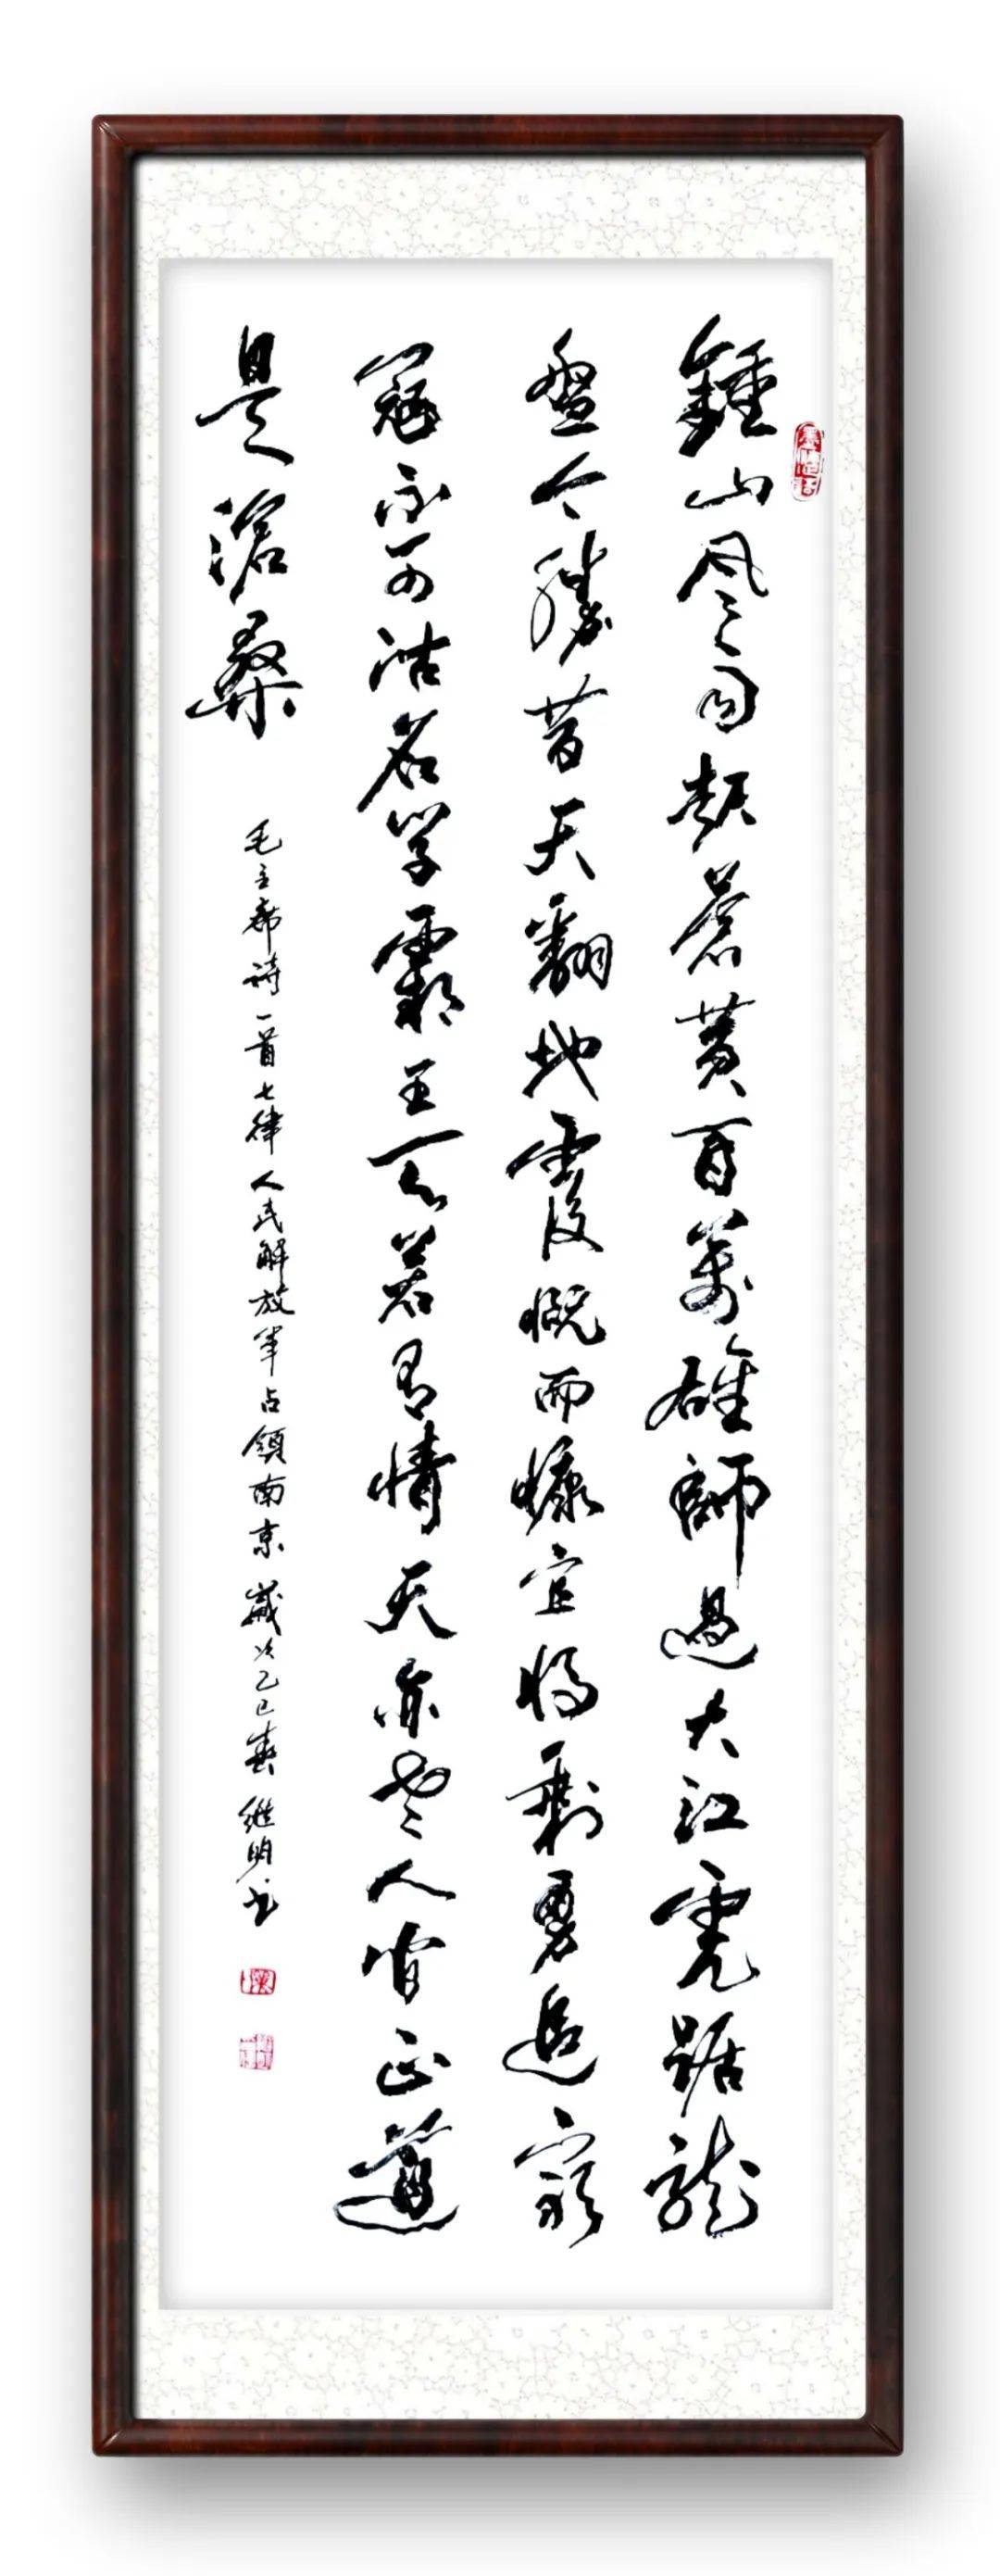 鍾山风雨起蒼黄百萬雄師過大江虎踞龍
盘今勝昔天翻地覆慨而慷宜将剩勇追窮
寇不可沽名学霸王天若有情天亦老人间正道
是滄桑
毛主席詩一首七律人民解放军占領南京歲次乙巳春继明书